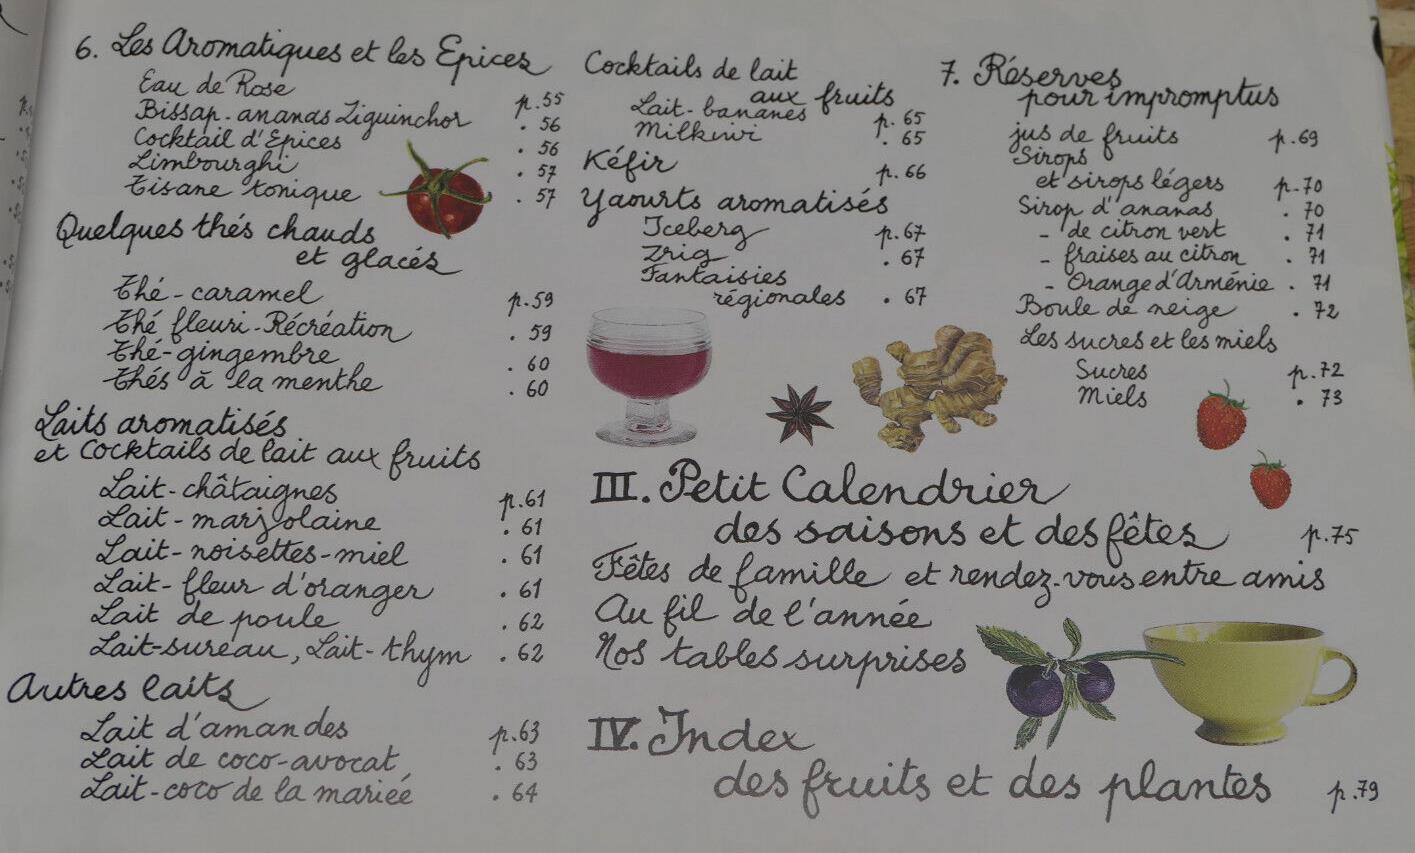 6. Les Aromatiques et les Epices
Eau de Rose p.55
Bissap-ananas Ziguinchor . 56
Cocktail d'Epices . 56
Limbourghi . 57
Tisane tonique . 57
Quelques thés chauds
et glacés
Thé-caramel p.59
Thé fleuri-Récréation . 59
Thé-gingembre . 60
Thés à la menthe . 60
Laits aromatisés
et Cocktails de lait aux fruits
Lait-châtaignes p.61
Lait-marjolaine . 61
Lait-noisettes-miel . 61
Lait-fleur d'oranger . 61
Lait de poule . 62
Lait-sureau, Lait-thym . 62
Autres laits
Lait d'amandes p.63
Lait de coco-avocat . 63
Lait-coco de la mariée . 64
Cocktails de lait
aux fruits
Lait-bananes p.65
Milkiwi . 65
Kéfir p.66
Yaourts aromatisés
Iceberg p.67
Zrig . 67
Fantaisies
régionales . 67
7. Réserves
pour impromptus
jus de fruits p.69
Sirops
et sirops légers p.70
Sirop d'ananas . 70
- de citron vert . 71
- fraises au citron . 71
- Orange d'Arménie . 71
Boule de neige . 72
Les sucres et les miels
Sucres p.72
Miels . 73
III. Petit Calendrier
des saisons et des fêtes p.75
Fêtes de famille et rendez-vous entre amis
Au fil de l'année
Nos tables surprises
IV. Index
des fruits et des plantes p.79